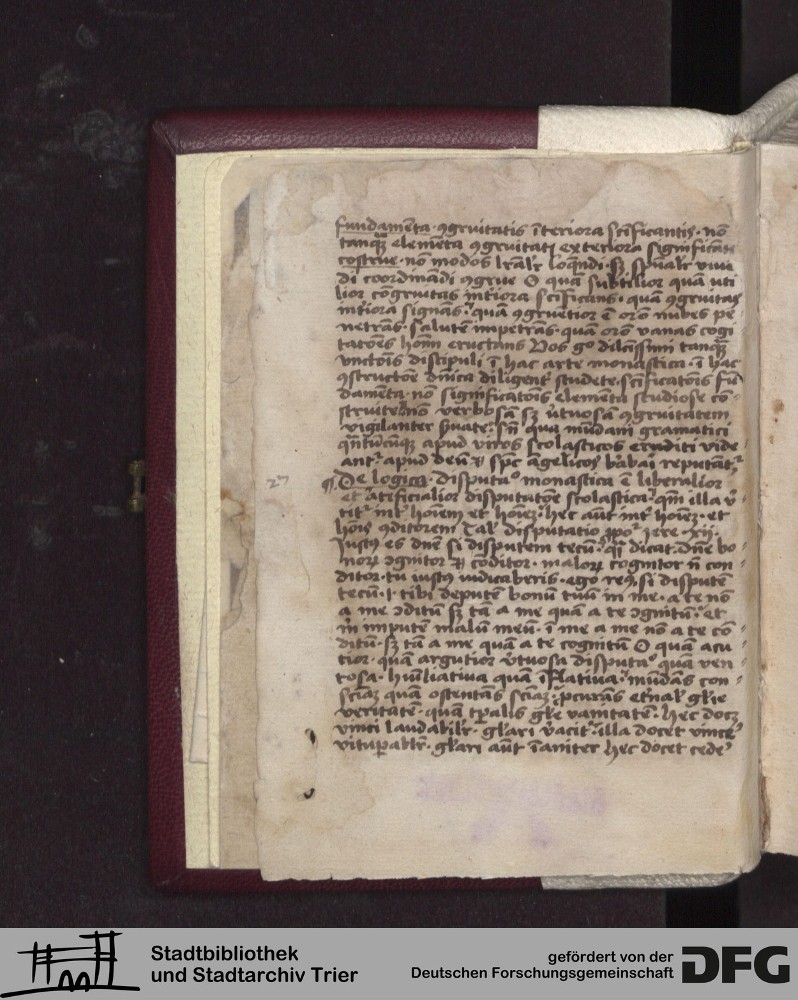 fundamēta ꝯgruitatis īteriora scīficantis · nō
tanqꝫ elemēta ꝯgruitatꝭ exteriora significan
costrue · nō modos lr̄alr̄ loqndi · sꝫ spūalr̄ viuē
di coordinādi ꝯgrue O quā subtilior quā uti
lior cōgruitas int̓iora scīficans · quā ꝯgruitas
int̓iora signās · quā ꝯgruētior ē orō nubes pe
netrās · salutē impetrās · quā orō vanas cogi
tatōes hoīm eructans Vos gͦ dilcīssimi tanqꝫ
vnctōis discipuli ī hac arte monastica · ī hac
ꝯstructōe dnīca diligent̓ studete · scīficatōis fū
damēta · nō significatōis elemēta studiose cō
struite · nō verbosā sꝫ v̓tuosā ꝯgruitatem
vigilanter ſuate · sn̄ qua mūdani gramatici
qn̄tūcūqꝫ apud viros scolasticos eruditi vide
ant᷑ · apud deū ⁊ spc̄ āgelicos barbari reputāt᷑
27
¶ De logica · disputaͦ monastica ē liberalior
et artificialior disputatōe scolastica · qm̄ illa v̓
tit᷑ int̓ hoīem et hoīeꝫ · hec aūt int̓ hoīeꝫ · et
hoīs ꝯditorem Talꝭ disputatio ꝓpoͬ jere · xij ·
Justꝰ es dn̄e si disputem tecū · qͣ dicat · dn̄e bo
norꝝ ꝯgnitor ⁊ cōditor · malorꝝ cognitor n̄ con
ditor · tu iustꝰ iudicaberis · ego reꝰ, si disputē
tecū · i · tibi deputē bonū tuū in me · a te nō
a me ꝯditū sꝫ tā a me quā a te ꝯgnitū · et
m̄ imputē malū meū · ī me a me nō a te cō
ditū · sꝫ tā a me quā a te cognitū O quā acu
tior · quā argutior v̓tuosa disputaͦ quā ven
tosa · humiliatiua quā īflatiua · mūdās con
sciāꝫ quā ostentās sciāꝫ · ꝓcurās et̓nalꝭ gl̄ie
veritatē · quā tꝑalis gl̄e vanitatē · hec docꝫ
vinci laudabilr̄ · gl̄ari v̓acit̓ · illa docet vince᷑
vituꝑabilr̄ · gl̄ari aūt īaniter hec docet cede᷑
Stadtbibliothek
und Stadtarchiv Trier
gefördert von der
Deutschen Forschungsgemeinschaft
DFG